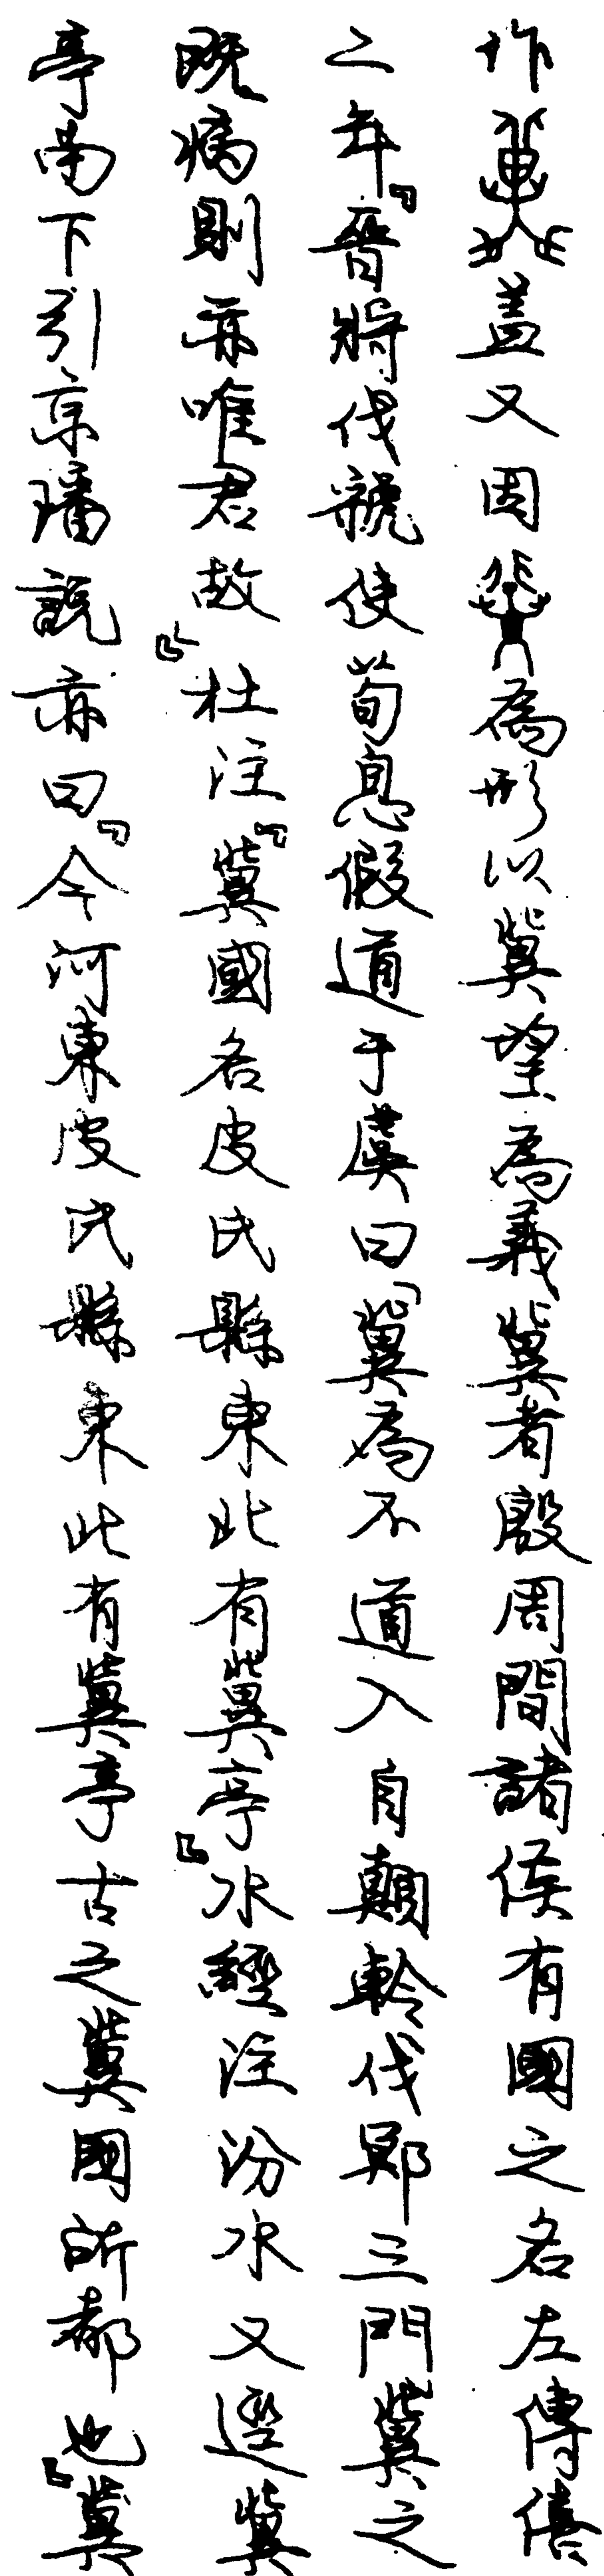 作蓋又因為形以冀望為義冀者殷周間諸侯有國之名左傳僖
二年「晉將伐虢使荀息假道于虞曰「冀為不道入自顛軨伐鄍三門冀之
既病則亦唯君故」杜注「冀國名皮氏縣東北有冀亭」水經注汾水又逕冀
亭南下引京璠說亦曰「今河東皮氏縣東北有冀亭古之冀國所都也」冀